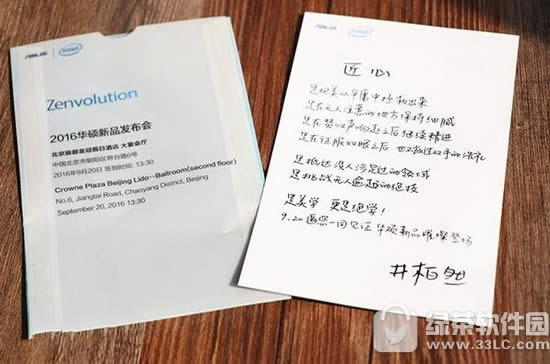 ASUS intel
Zenvolution
2016华硕新品发布会
北京丽都皇冠假日酒店 大宴会厅
中国北京市朝阳区将台路6号
2016年9月20日 签到时间: 13:30
Crowne Plaza Beijing Lido—Ballroom(second floor)
No.6, Jiangtai Road, Chaoyang District, Beijing
September 20, 2016 13:30
ASUS intel
匠心
是把美从平庸中拯救出来
是在无人注意的地方保持细腻
是在赞叹声响起之后继续精进
是在征服双眼之后 也难抵过双手的洗礼
是抵达没人涉足过的领域
是挑战无人逾越的绝技
是美学 更是绝学!
9.20邀您一同见证华硕新品璀璨登场
井柏然
绿茶软件园
www.33LC.com